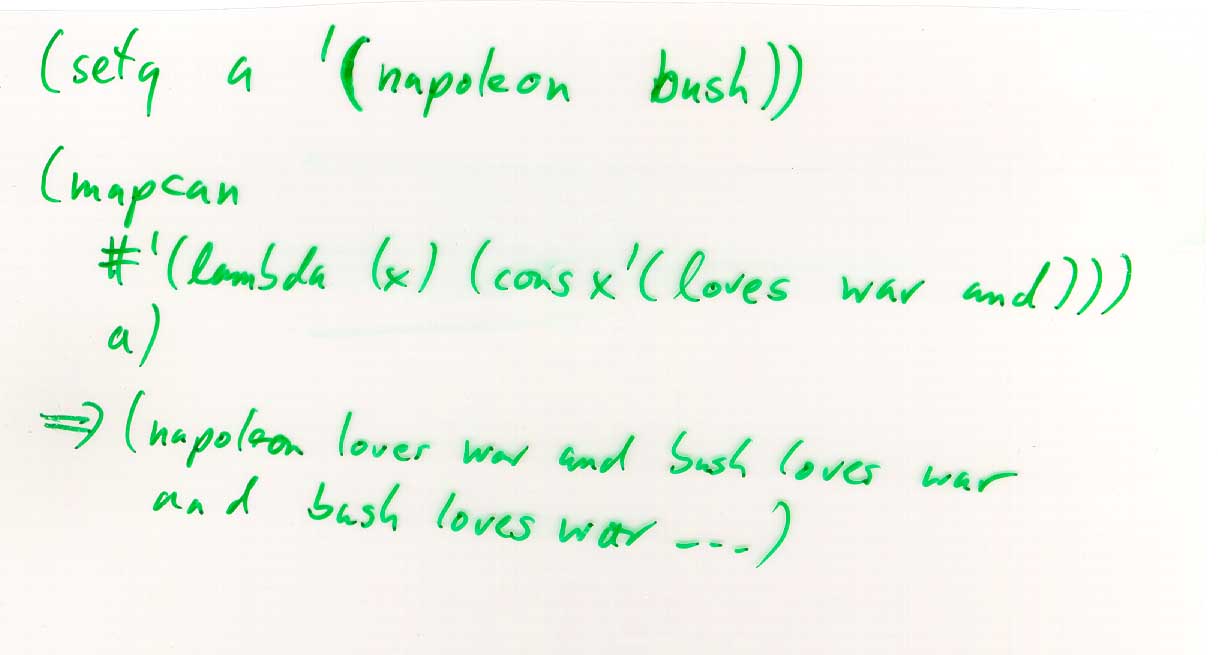 (setq a '(napoleon bush))
(mapcan
#'(lambda (x) (cons x '(loves war and)))
a)
⇒ (napoleon loves war and bush loves war
and bush loves war ----)